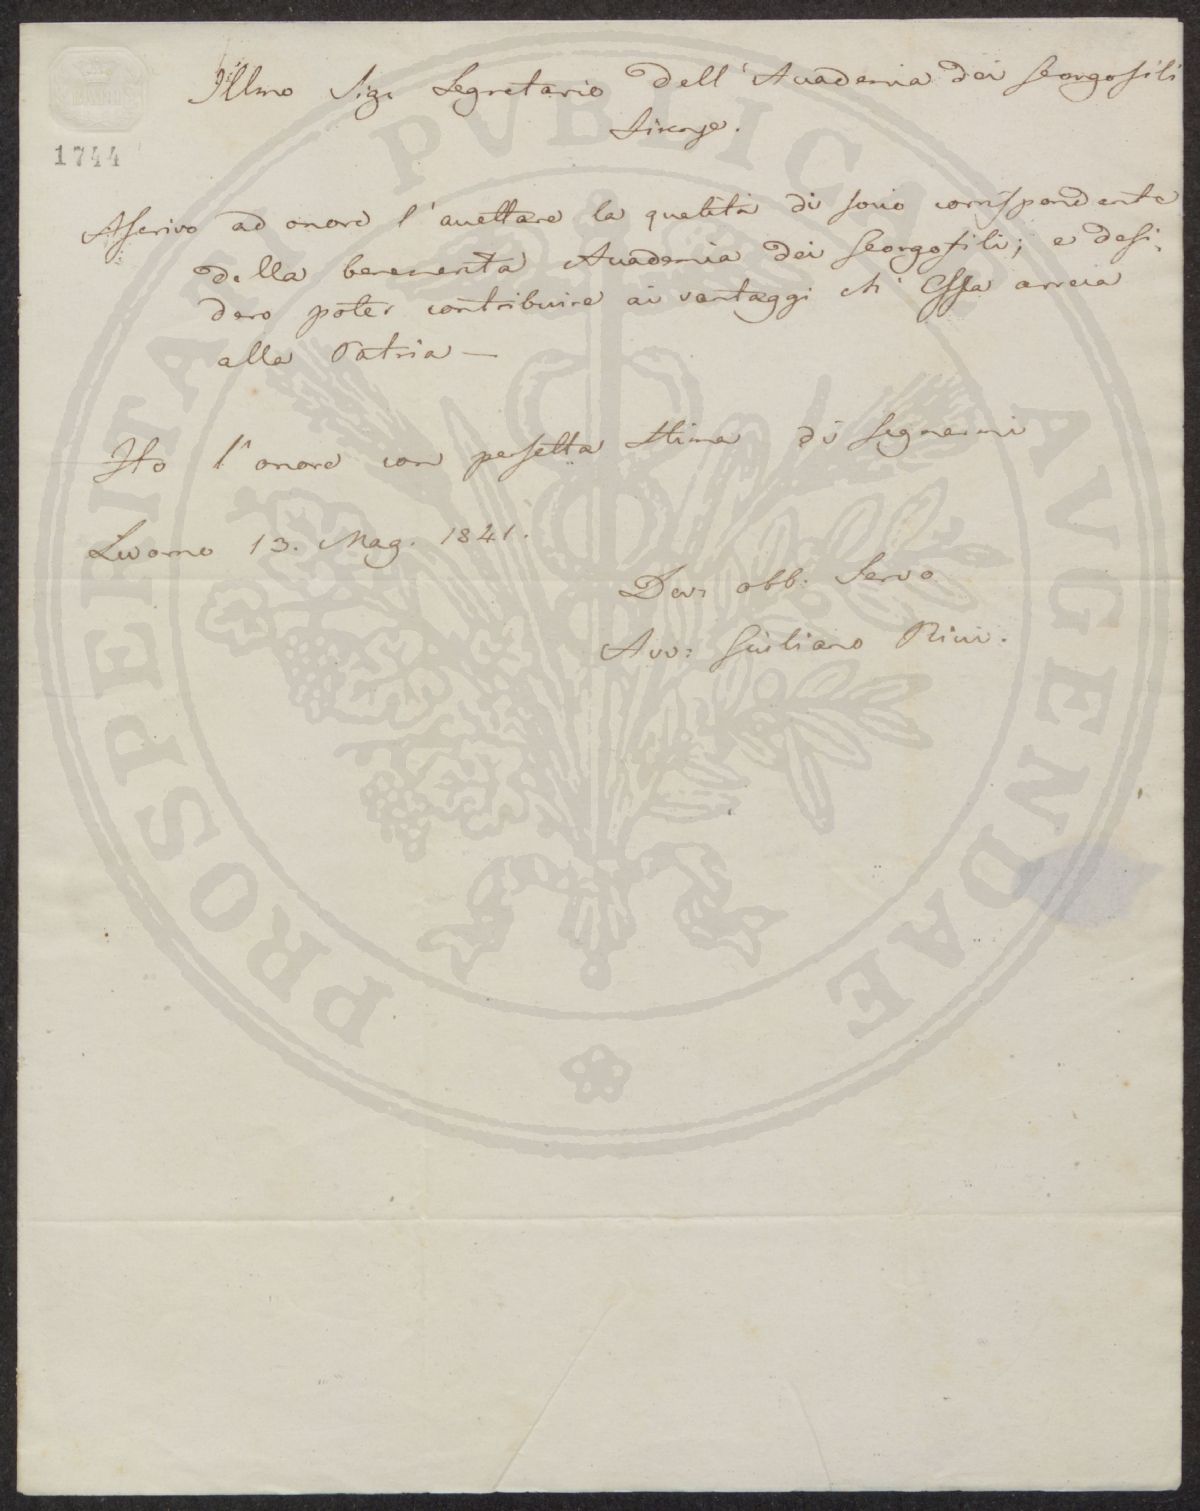 Illmo Sig. Segretario dell'Accademia dei Georgofili
Firenze.
1744
Ascrivo ad onore l'accettare la qualità di socio corrispondente
della benemerita Accademia dei Georgofili; e desi-
dero poter contribuire ai vantaggi ch'Essa arreca
alla Patria —
Ho l'onore con perfetta stima di segnarmi
Livorno 13. Mag. 1841.
Dev: obb: Servo
Avv: Giuliano Ricci.
PROSPERITATI PVBLICAE AVGENDAE